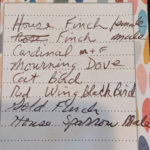 House Finch female
House Finch male
Cardinal m+F
Mourning Dove
Cat Bird
Red Wing Black Bird
Gold Finch
House Sparrow Male